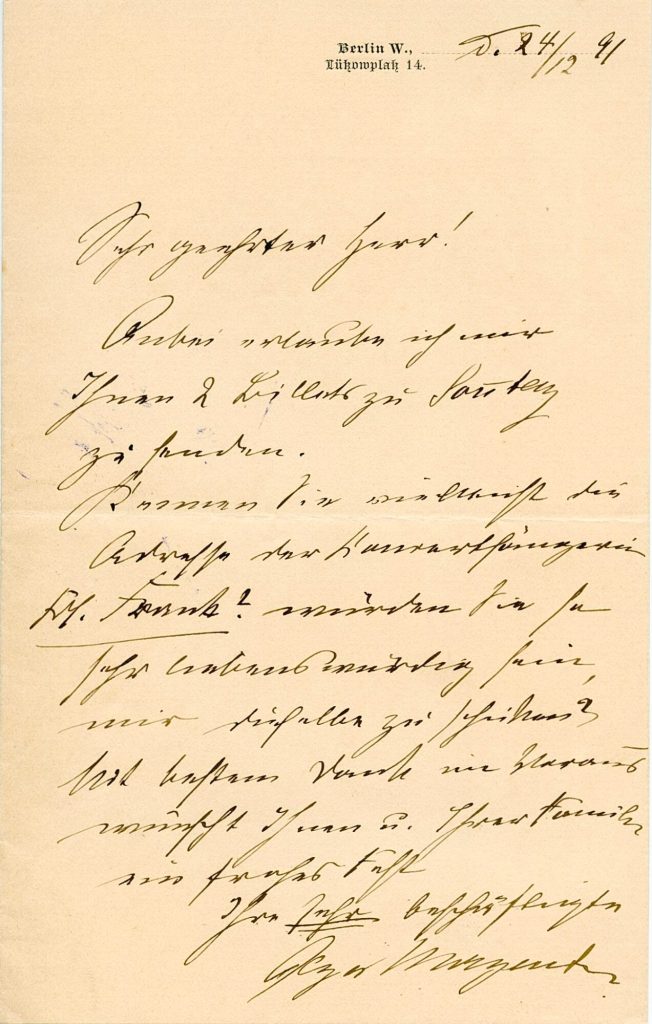 Berlin W., D. 24/12 91
Lützowplatz 14.
Sehr geehrter Herr!
Anbei erlaube ich mir
Ihnen 2 Billets zu Sonntag
zu senden.
Kennen Sie vielleicht die
Adresse der Konzertsängerin
Frl. Frank? würden Sie so
sehr liebenswürdig sein,
mir dieselbe zu schicken?
Mit bestem Dank im Voraus
wünscht Ihnen u. Ihrer Familie
ein frohes Fest
Ihre sehr beschäftigte